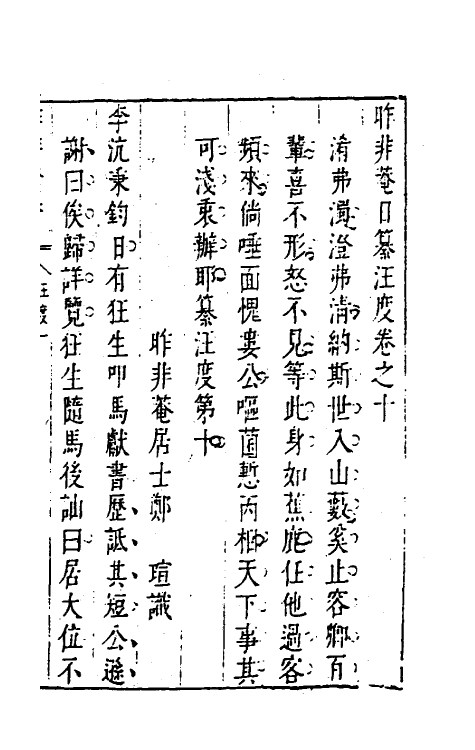 昨非菴日纂汪度卷之十
淆弗濁澄弗清納斯世入山藪奚止容卿百
輩喜不形怒不見等此身如蕉鹿任他過客
頻來倘唾面愧婁公嘔茵慙丙相天下事其
可淺衷辦耶纂汪度第十
昨非菴居士鄭 瑄識
李沆秉鈞日有狂生叩馬獻書歷詆其短公遜
謝曰俟歸詳覽狂生隨馬後訕曰居大位不
汪度一